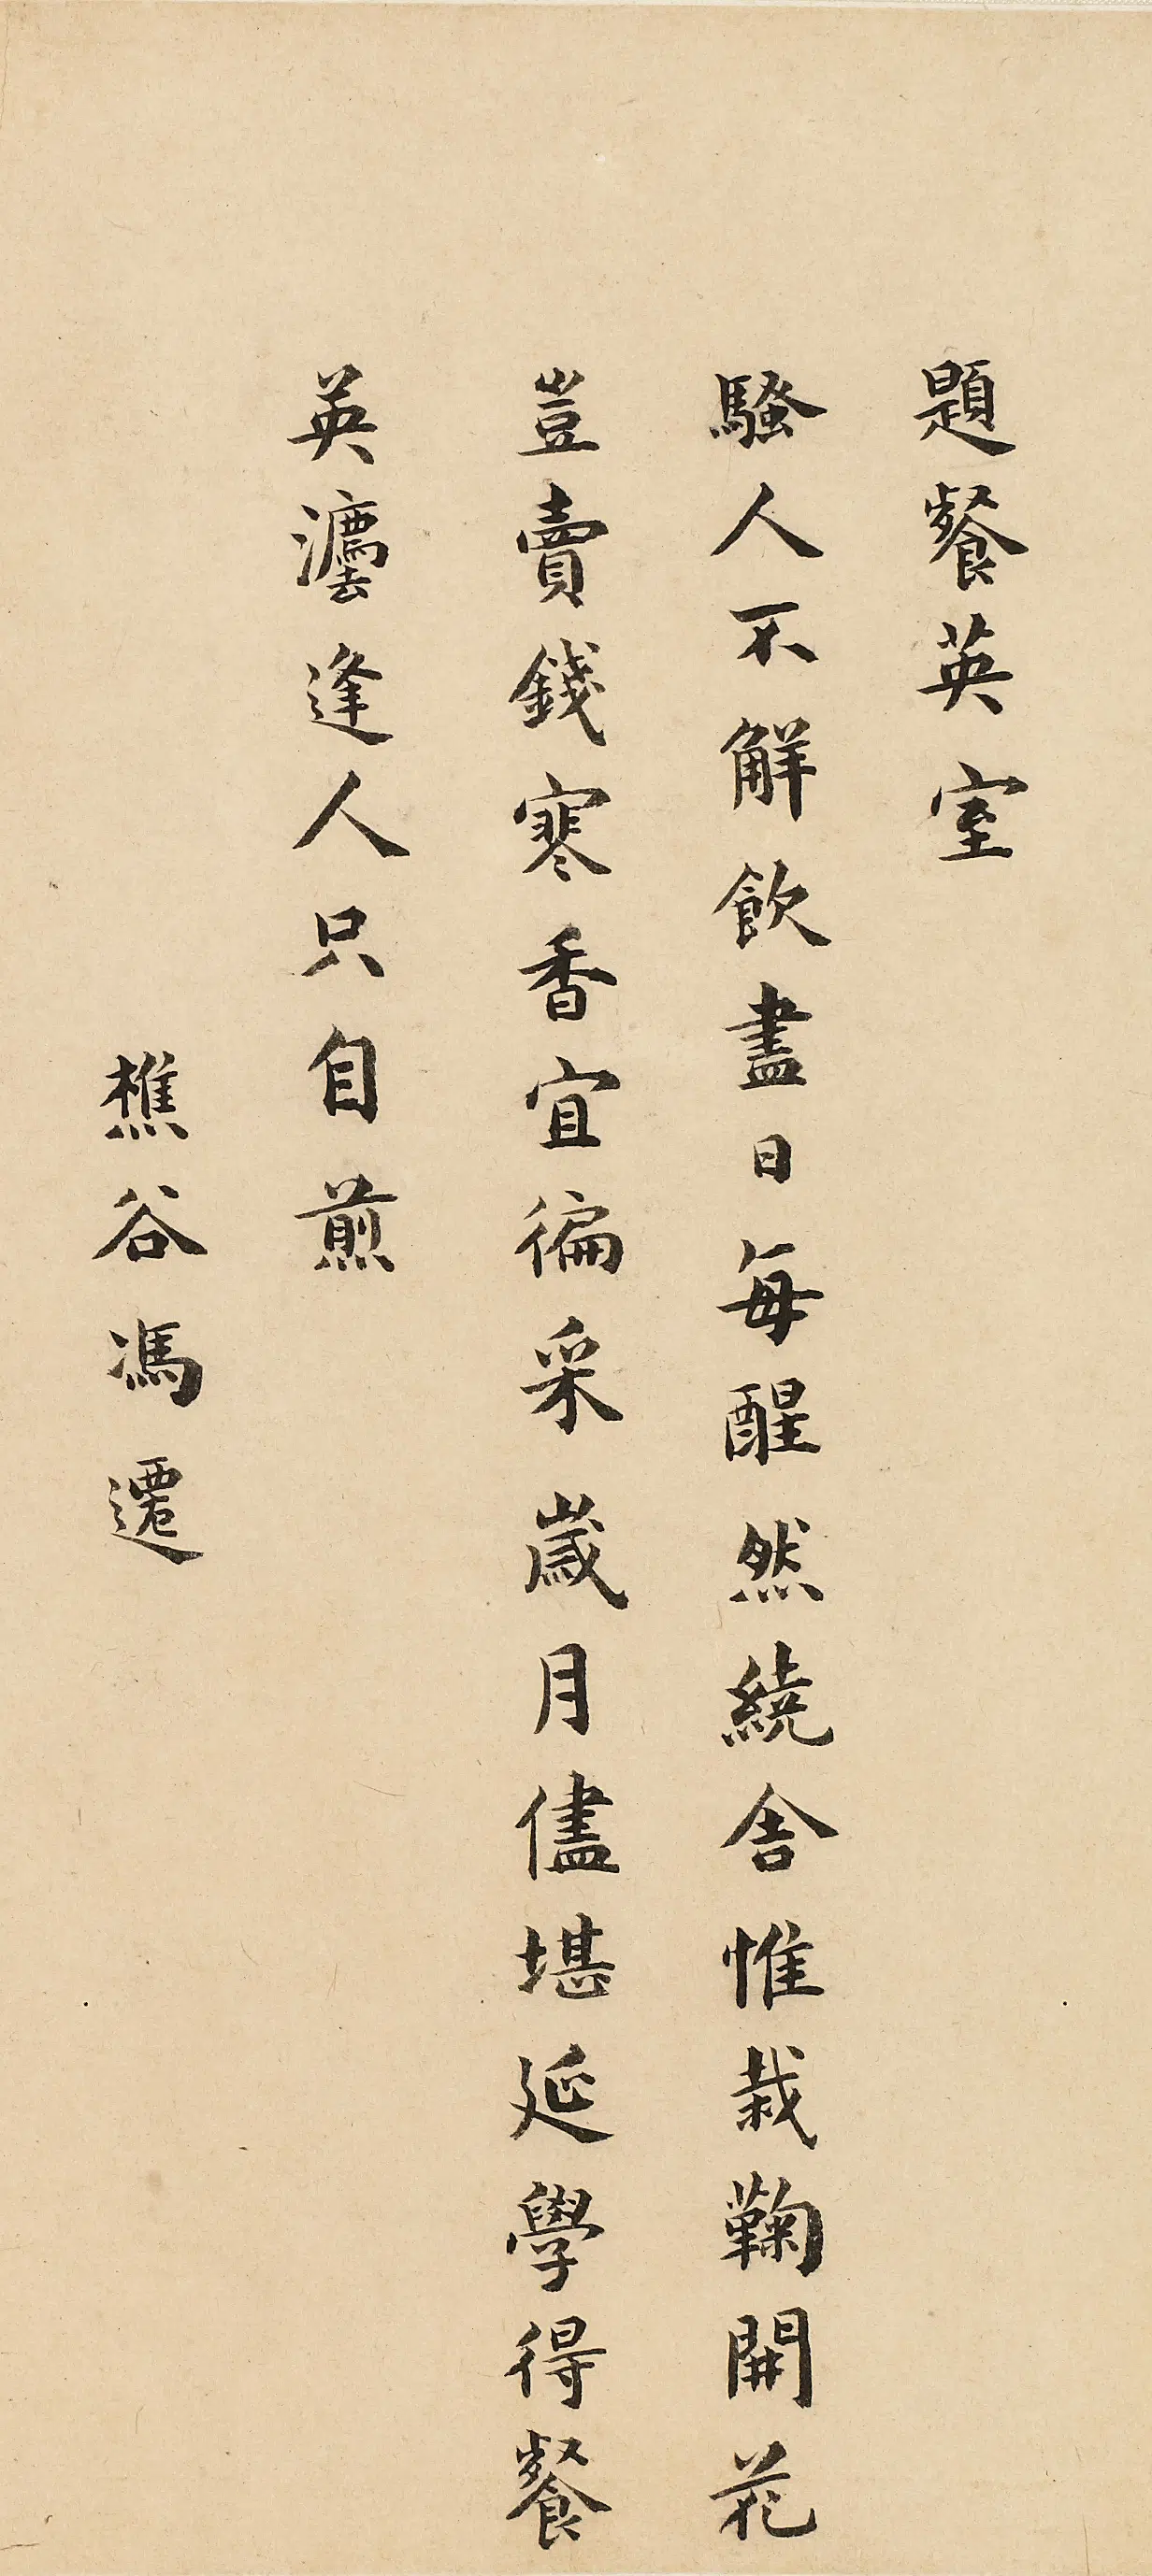 題餐英室
騷人不解飲盡日每醒然繞舍惟栽鞠開花
豈賣錢寒香宜徧采歲月儘堪延學得餐
英灋逢人只自煎
樵谷馮遷